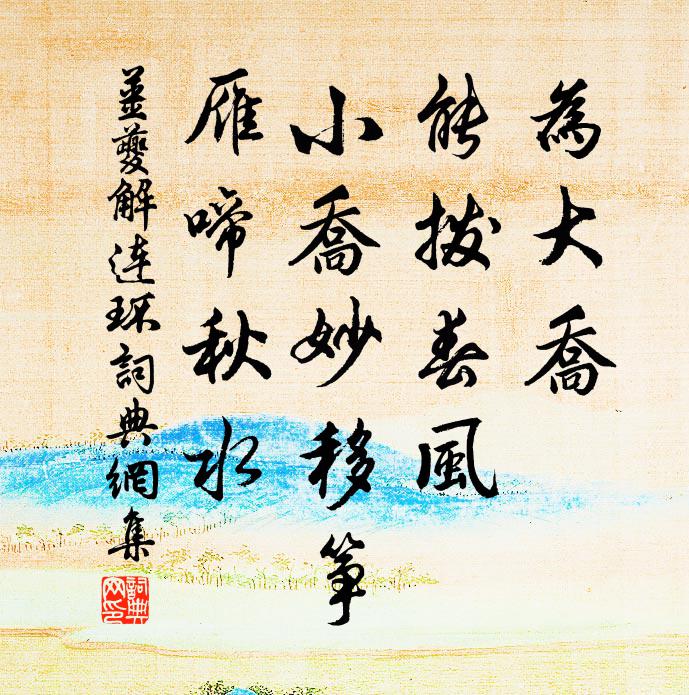 為大喬
能撥春風
小喬妙移箏
雁啼秋水
姜夔解连环詞典網集
詞典网印